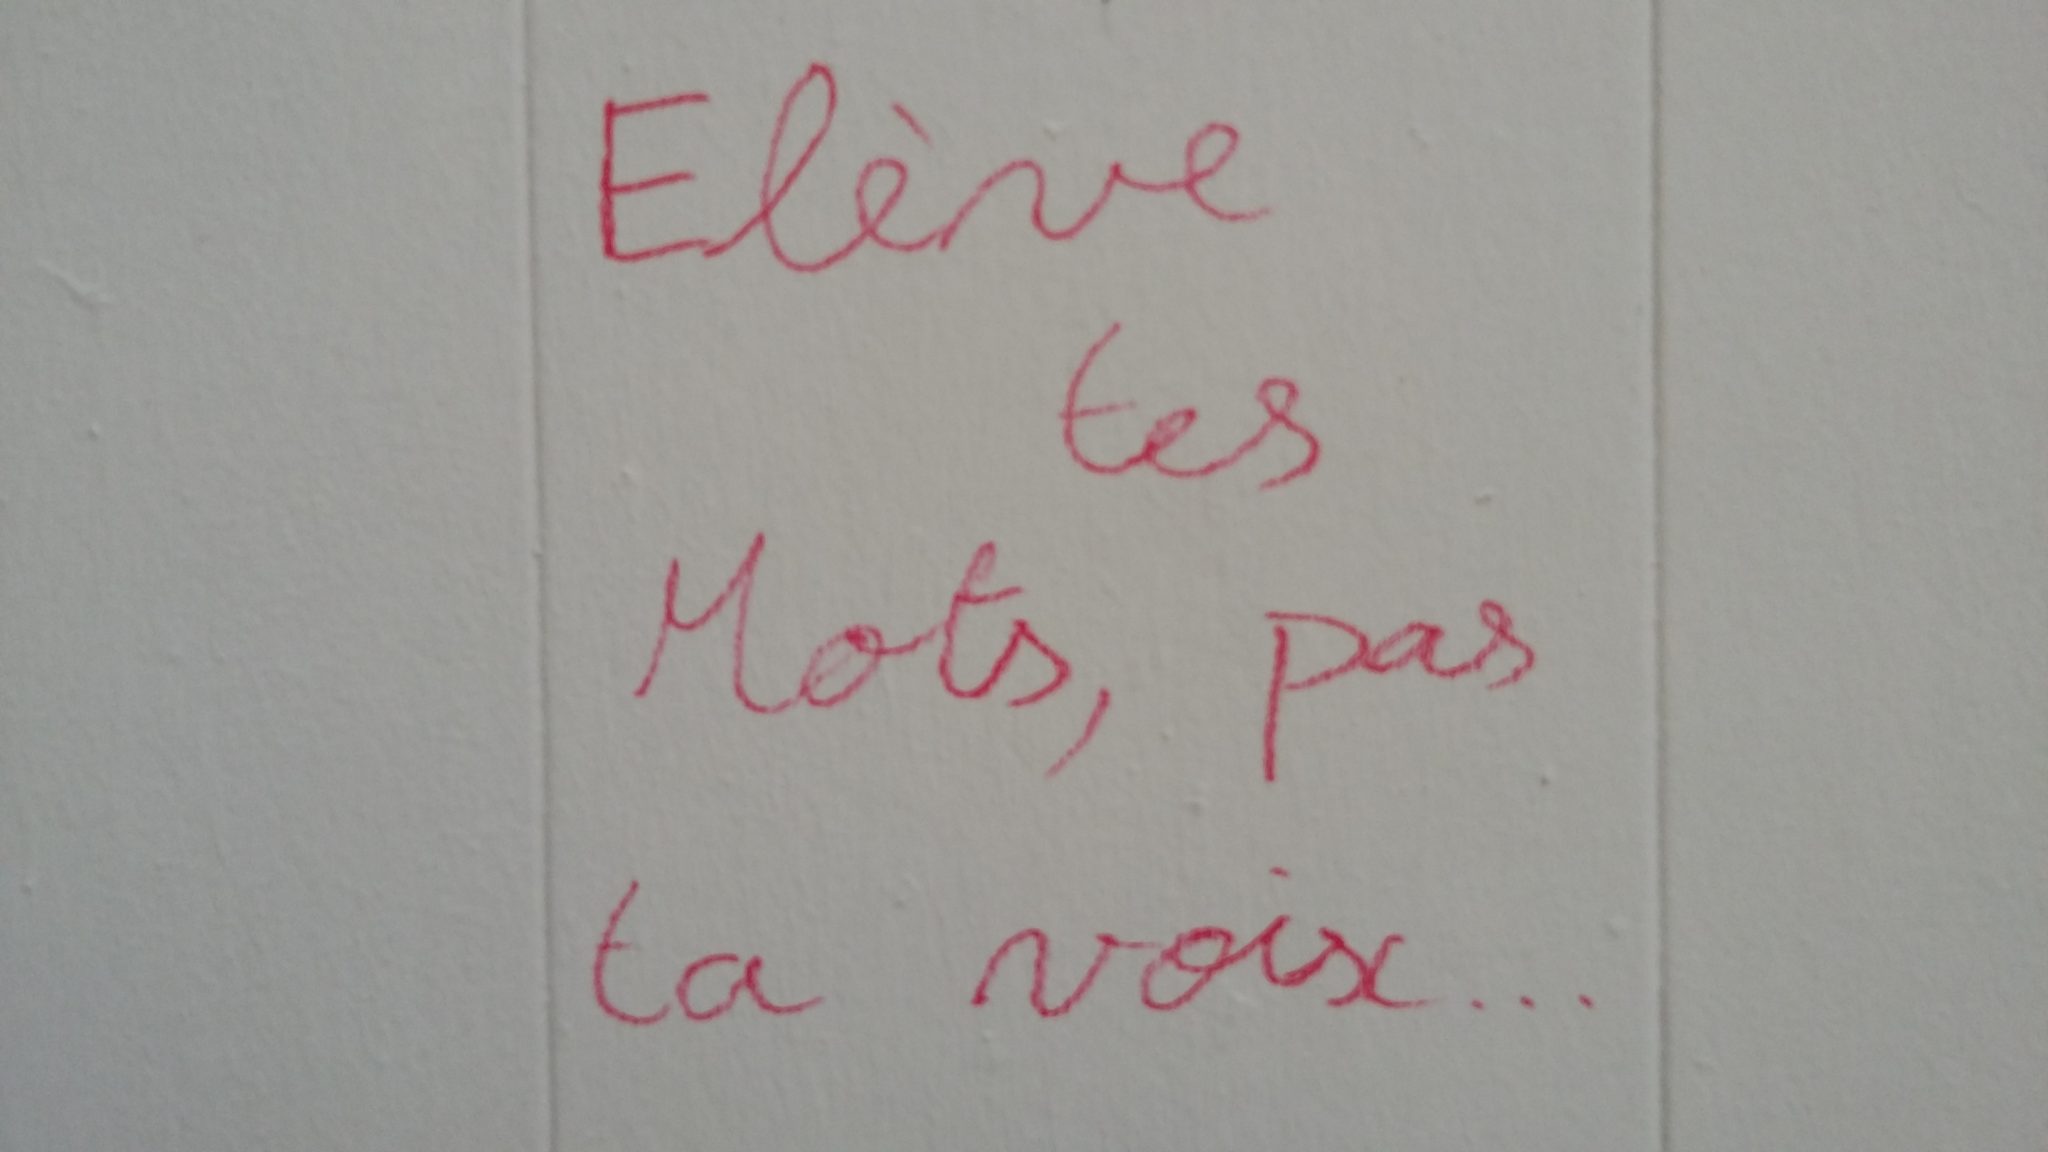 Elève
tes
Mots, pas
ta voix...